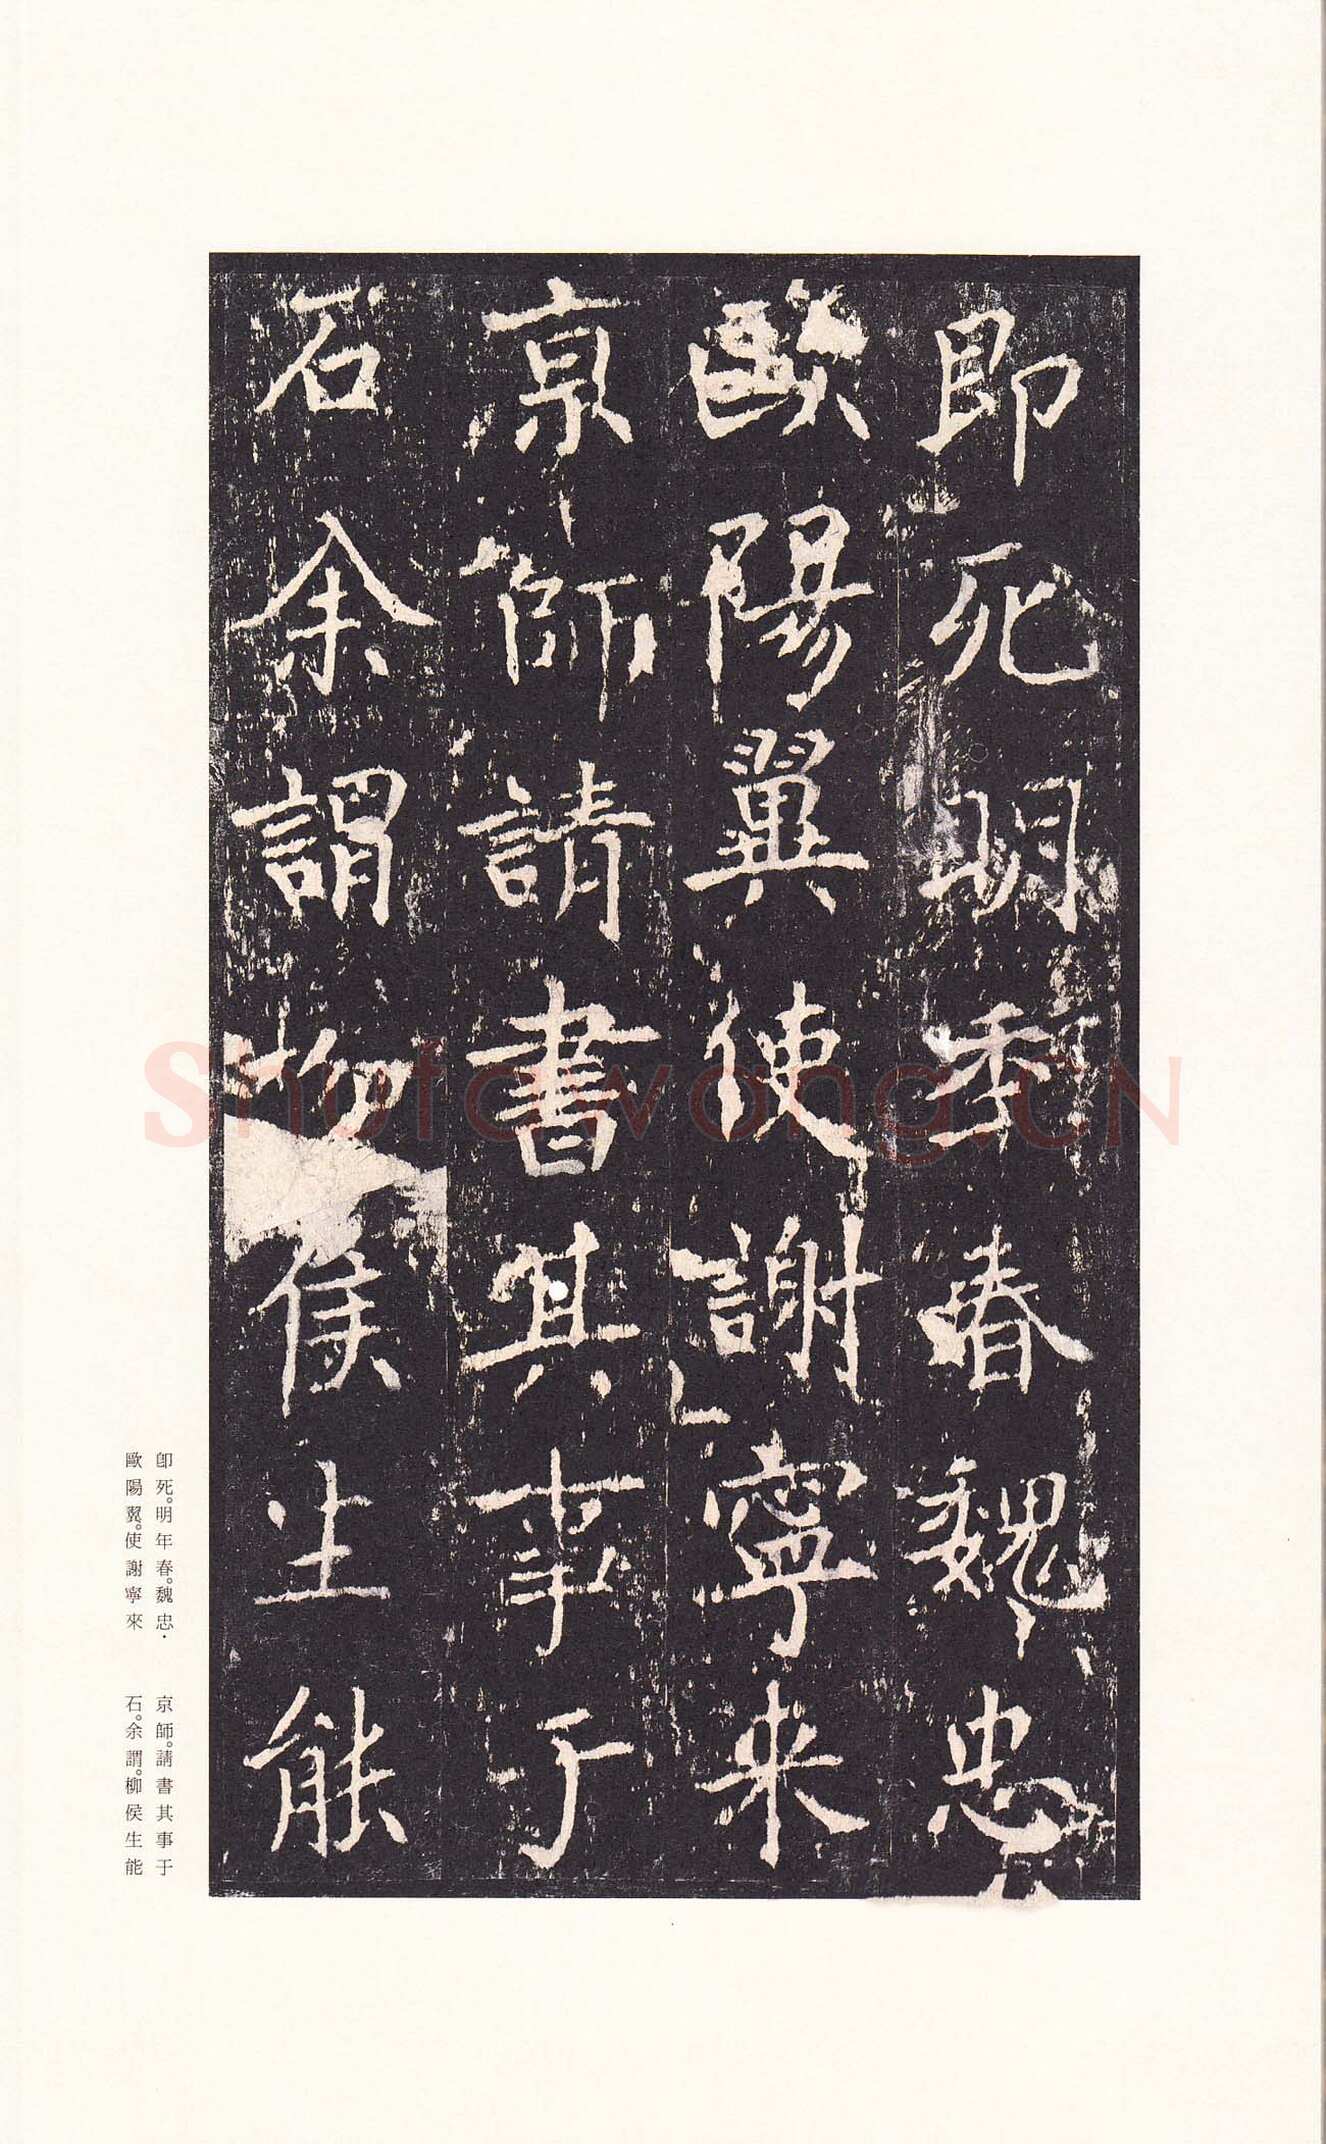 即死明年春魏忠
歐陽翼使謝寧來
京師請書其事于
石余謂柳侯生能
卽死。明年春。魏忠·
歐陽翼。使謝寧來
京師。請書其事于
石。余謂。柳侯生能
Shufawang.CN